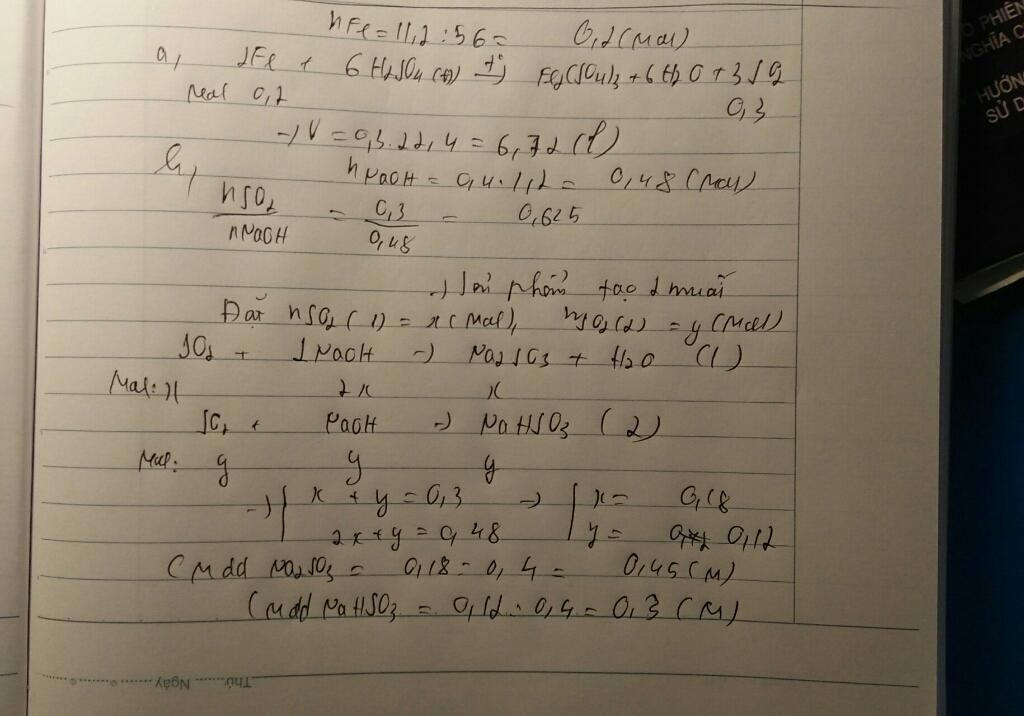 nFe = 11,2 : 56 = 0,2 (mol)
a, 2Fe + 6H2SO4 (đ) t° → Fe2(SO4)3 + 6H2O + 3SO2
Mol 0,2 0,3
→ V = 0,3.22,4 = 6,72 (l)
b, nNaOH = 0,4.1,2 = 0,48 (mol)
nSO2 / nNaOH = 0,3 / 0,48 = 0,625
→ Sản phẩm tạo 2 muối
Đặt nSO2 (1) = x (mol), nSO2 (2) = y (mol)
SO2 + 2NaOH → Na2SO3 + H2O (1)
Mol: x 2x x
SO2 + NaOH → NaHSO3 (2)
Mol: y y y
→ | x + y = 0,3 → | x = 0,18
2x + y = 0,48 y = 0,12
CM dd Na2SO3 = 0,18 : 0,4 = 0,45 (M)
CM dd NaHSO3 = 0,12 : 0,4 = 0,3 (M)
Thứ ........ Ngày ........
PHIÊN
NGHĨA C
HƯỚNG
SỬ D